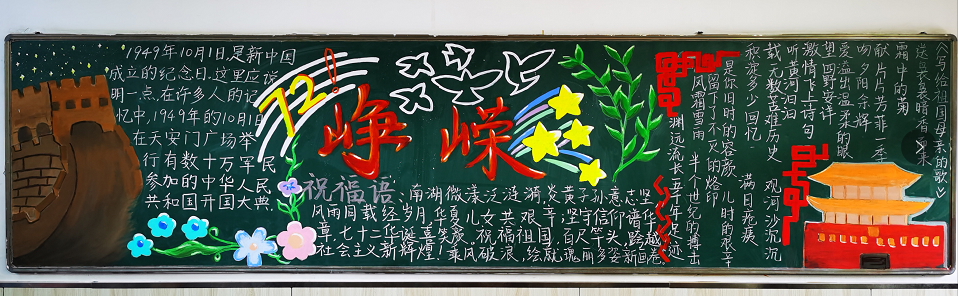 1949年10月1日,是新中国
成立的纪念日.这里应该
明一点,在许多人的记
忆中,1949年的10月1日
在天安门广场举
行有数十万军民
参加的中华人民
共和国开国大典.
72!
峥嵘
祝福语、南湖微漾泛涟漪,炎黄子孙意志坚
风雨同载经岁月,华夏儿女共艰苦;坚守信仰谱华
章,七十二华诞喜笑颜。祝福祖国:百尺竿头,跨越
社会主义新辉煌!乘风破浪,绘就瑰丽多姿新画卷。
《写给祖国母亲的歌》
霜中的菊
献片片芳菲一季
吻夕阳余辉
爱溢出温柔的眼
望四野安详
激情飞上诗句
听黄河汩汩
载无数苦难历史
积淀多少回忆
观河沙沉沉
满目疮痍
是你旧时的容颜
儿时的艰辛
留下了不灭的烙印
风祖雪雨
半个世纪的搏击
渊远流长五千年足迹